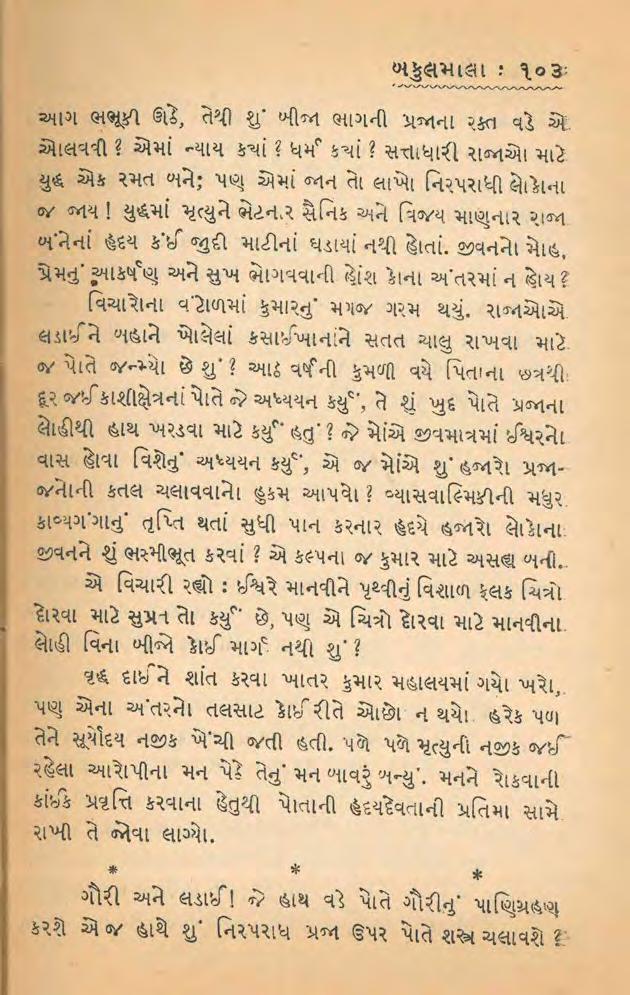 બકુલમાલા : ૧૦૩
આગ ભભૂકી ઊઠે, તેથી શું બીજા ભાગની પ્રજાના રક્ત વડે એ
ઓલવવી ? એમાં ન્યાય કયાં ? ધર્મ કયાં ? સત્તાધારી રાજાઓ માટે
યુદ્ધ એક રમત બને; પણ એમાં જાન તો લાખો નિરપરાધી લોકોના
જ જાય ! યુદ્ધમાં મૃત્યુને ભેટનાર સૈનિક અને વિજય માણનાર રાજા
બંનેનાં હૃદય કંઈ જુદી માટીનાં ઘડાયાં નથી હોતાં. જીવનનો મોહ,
પ્રેમનું આકર્ષણ અને સુખ ભોગવવાની હોંશ કોના અંતરમાં ન હોય ?
વિચારોના વંટોળમાં કુમારનું મગજ ગરમ થયું. રાજાઓએ
લડાઈને બહાને ખોલેલાં કસાઈખાનાંને સતત ચાલુ રાખવા માટે
જ પોતે જન્મ્યો છે શું ? આઠ વર્ષની કુમળી વયે પિતાના છત્રથી
દૂર જઈ કાશીક્ષેત્રનાં પોતે જે અધ્યયન કર્યું, તે શું ખુદ પોતે પ્રજાના
લોહીથી હાથ ખરડવા માટે કર્યું હતું ? જે મોંએ જીવમાત્રમાં ઈશ્વરનો
વાસ હોવા વિશેનું અધ્યયન કર્યું, એ જ મોંએ શું હજારો પ્રજા-
જનોની કતલ ચલાવવાનો હુકમ આપવો ? વ્યાસવાલ્મિકીની મધુર
કાવ્યગંગાનું તૃપ્તિ થતાં સુધી પાન કરનાર હૃદયે હજારો લોકોના
જીવનને શું ભસ્મીભૂત કરવાં ? એ કલ્પના જ કુમાર માટે અસહ્ય બની.
એ વિચારી રહ્યો : ઈશ્વરે માનવીને પૃથ્વીનું વિશાળ ફલક ચિત્રો
દોરવા માટે સુપ્રત તો કર્યું છે, પણ એ ચિત્રો દોરવા માટે માનવીના
લોહી વિના બીજો કોઈ માર્ગ નથી શું ?
વૃદ્ધ દાઈને શાંત કરવા ખાતર કુમાર મહાલયમાં ગયો ખરો,
પણ એના અંતરનો તલસાટ કોઈ રીતે ઓછો ન થયો. હરેક પળ
તેને સૂર્યોદય નજીક ખેંચી જતી હતી. પળે પળે મૃત્યુની નજીક જઈ
રહેલા આરોપીના મન પેઠે તેનું મન બાવરું બન્યું. મનને રોકવાની
કાંઈક પ્રવૃત્તિ કરવાના હેતુથી પોતાની હૃદયદેવતાની પ્રતિમા સામે
રાખી તે જોવા લાગ્યો.
* * *
ગૌરી અને લડાઈ ! જે હાથ વડે પોતે ગૌરીનું પાણિગ્રહણ
કરશે એ જ હાથે શું નિરપરાધ પ્રજા ઉપર પોતે શસ્ત્ર ચલાવશે ?